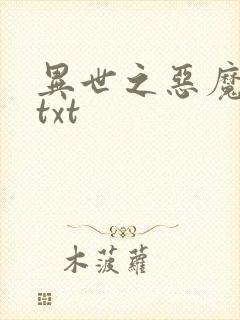 異世之惡魔
txt
木菠蘿